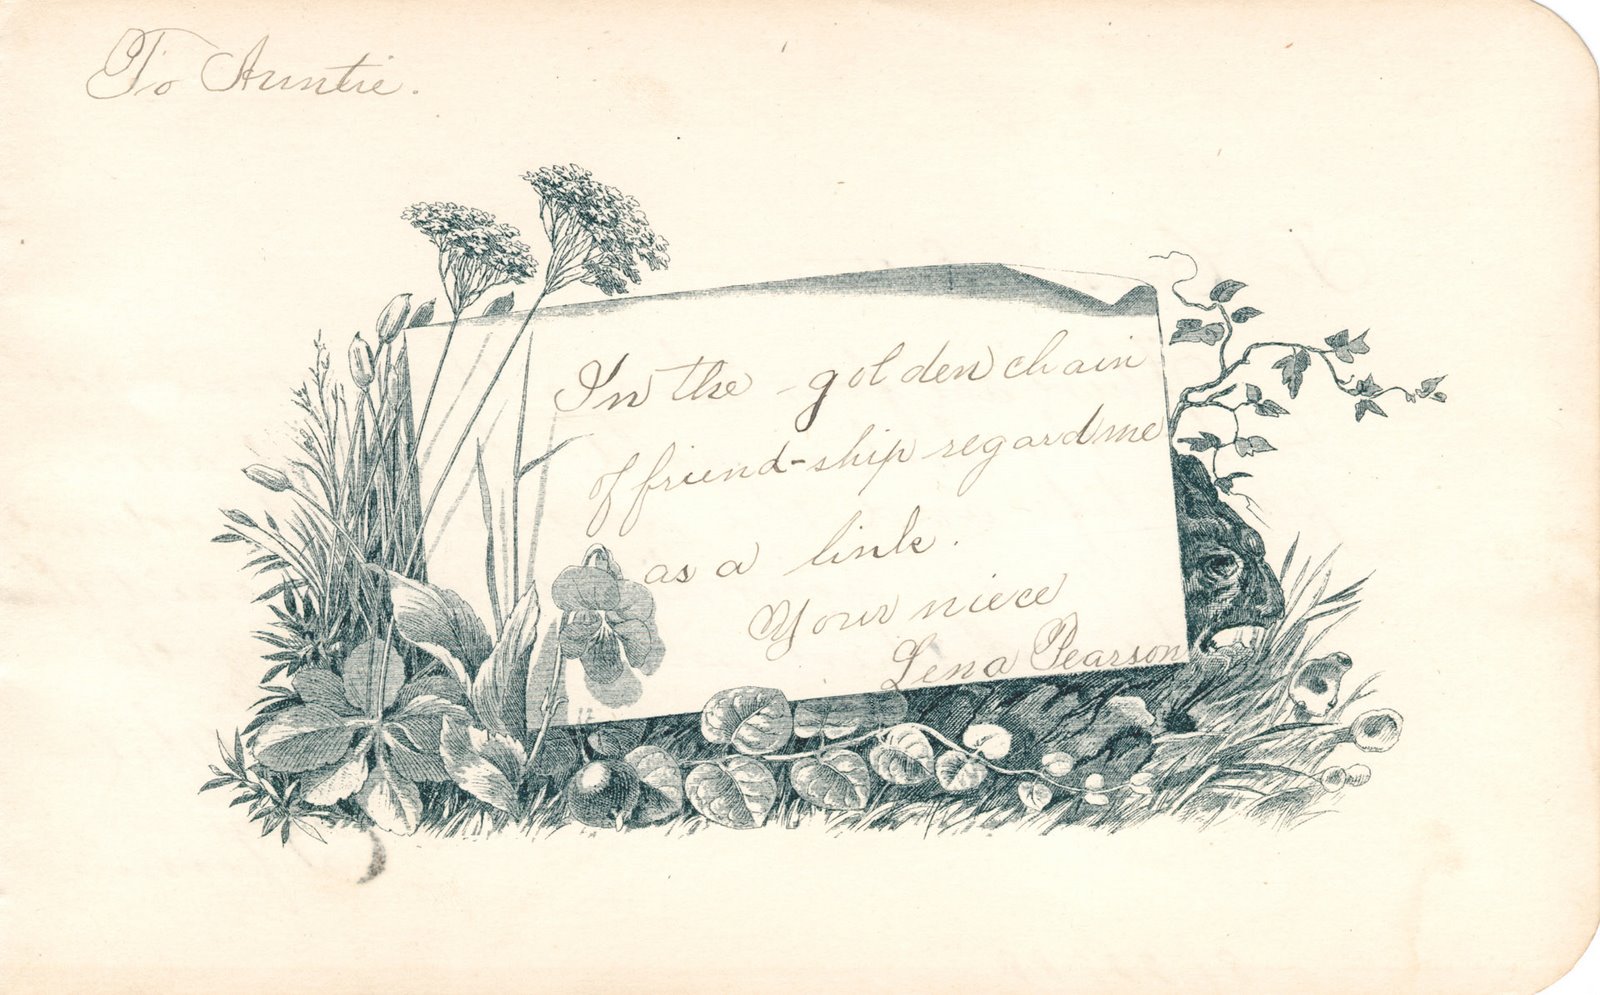 To Auntie.
In the golden chain
of friend-ship regard me
as a link.
Your niece
Lena Pearson